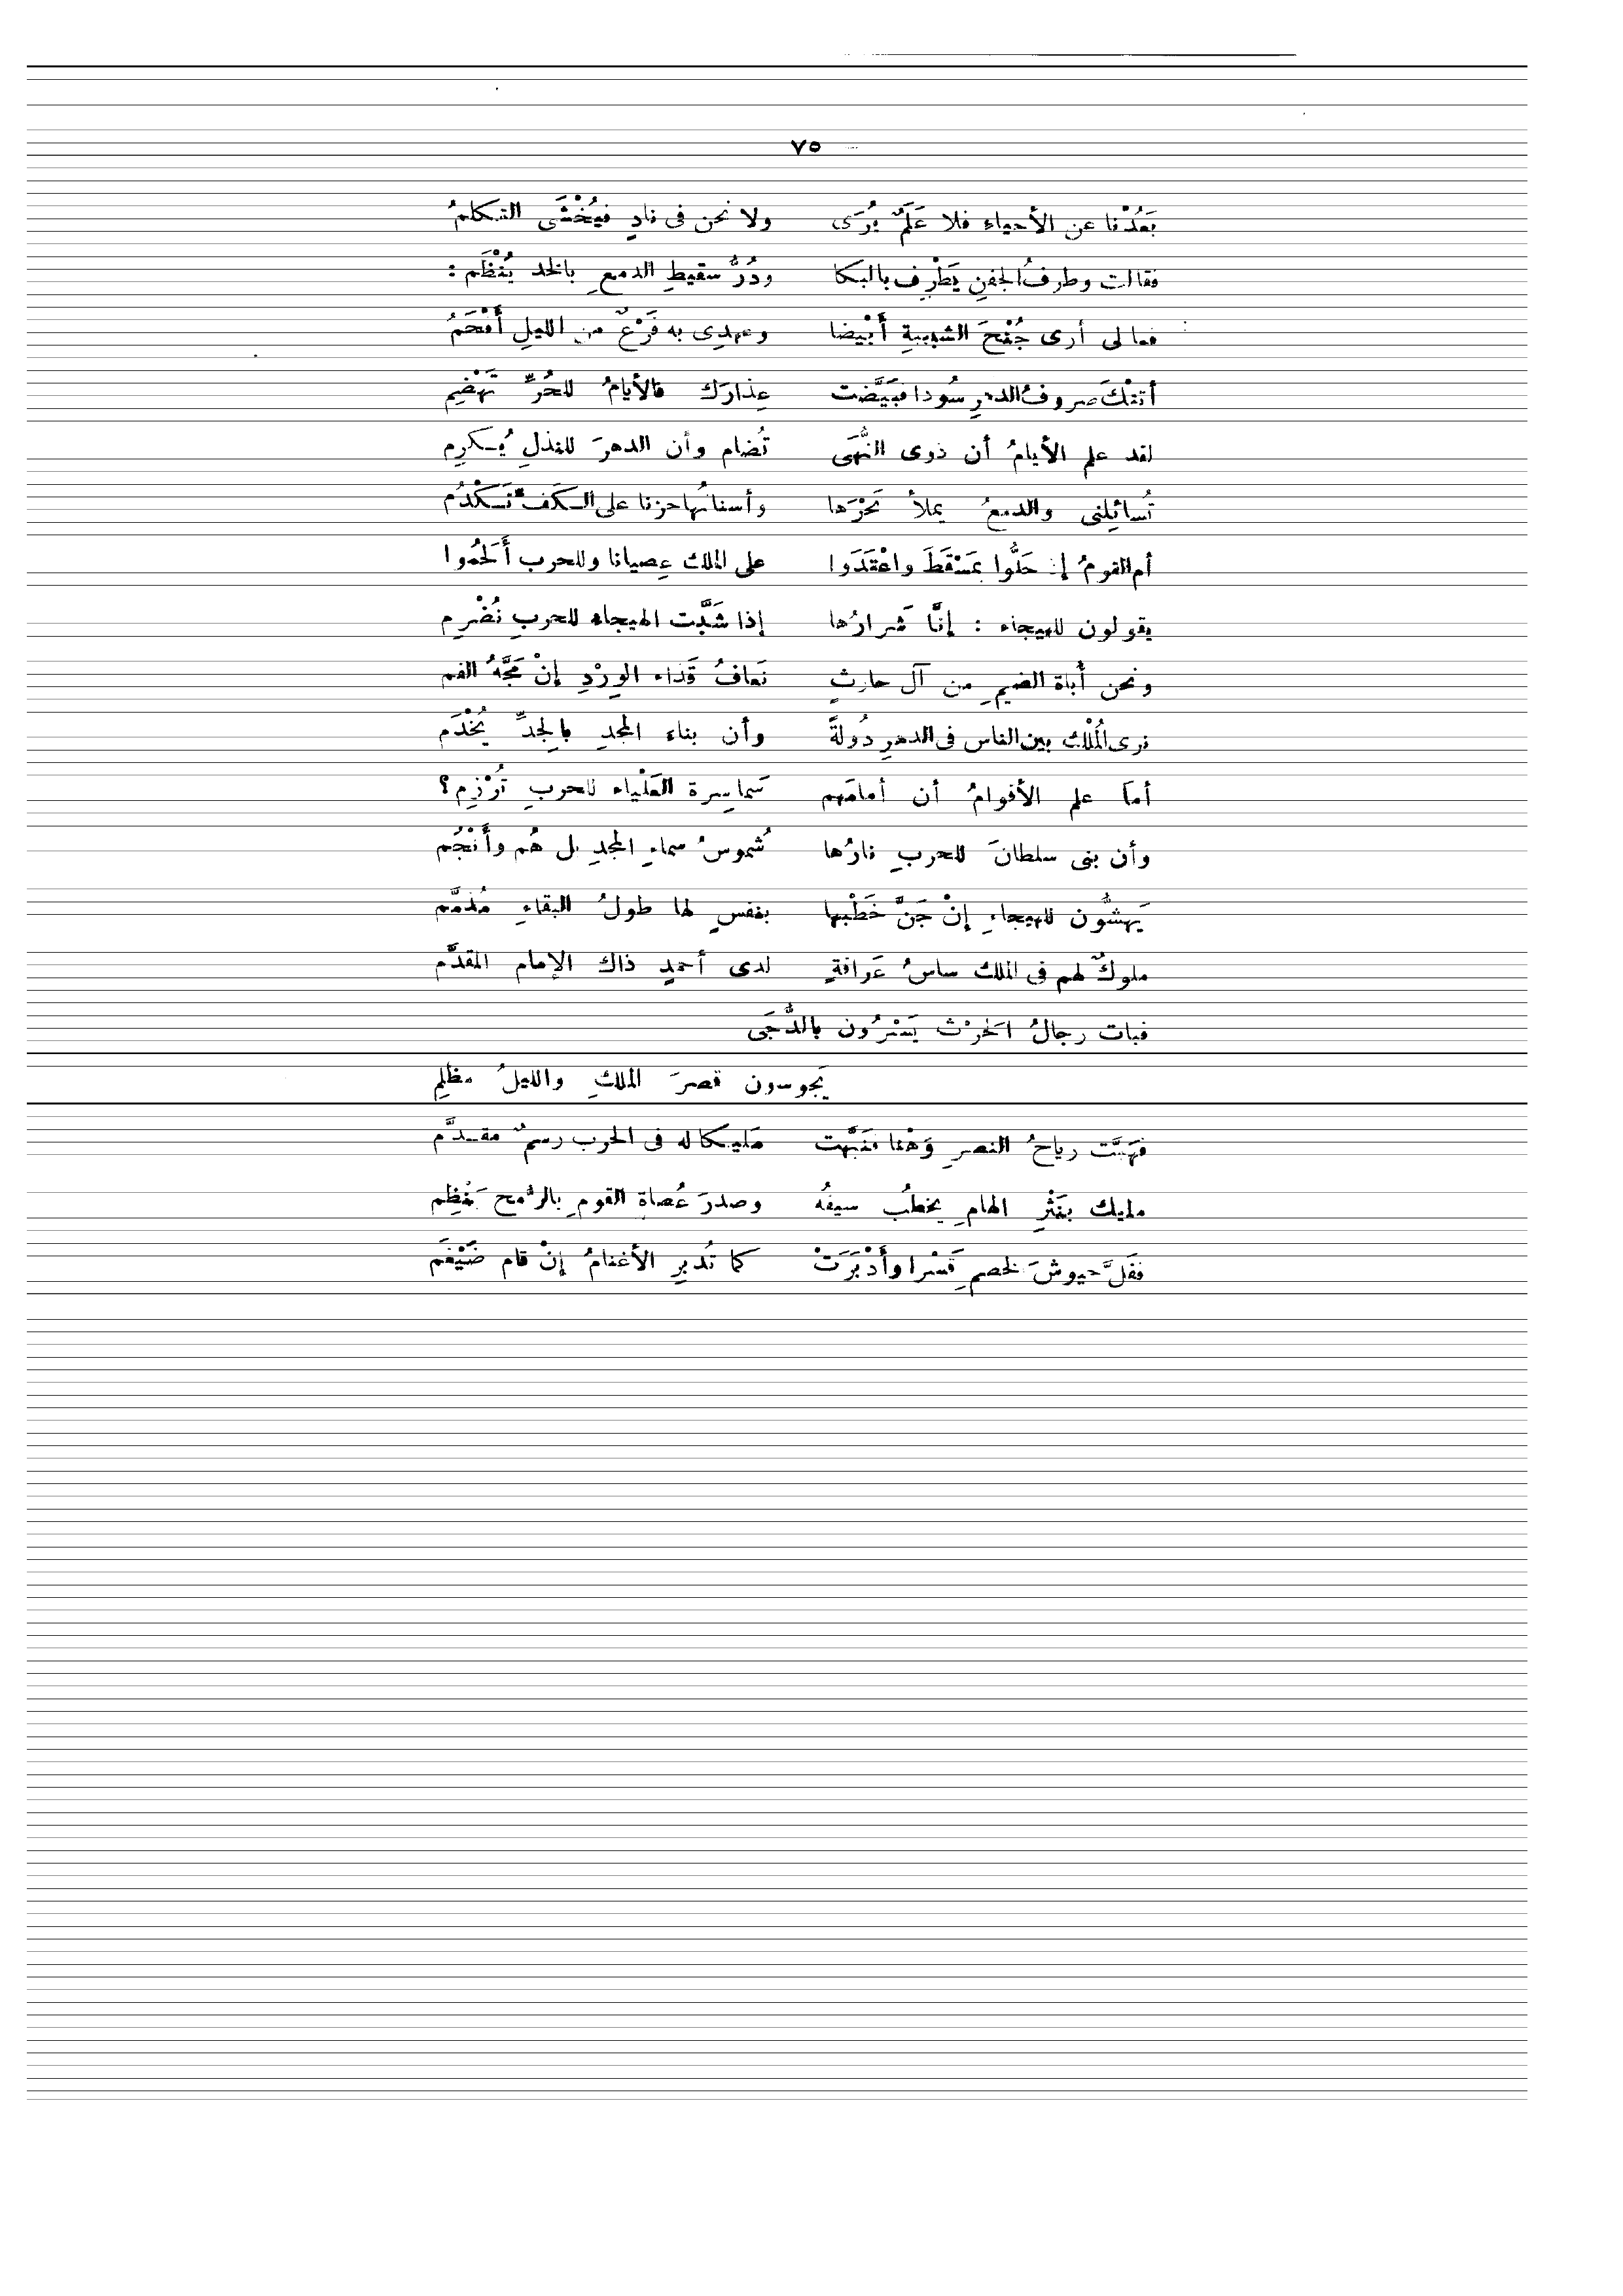 ٧٥
بَعُدْنا عن الأحياء فلا عَلَمٌ يُرَى ولا نحن فى نادٍ فيُخْشَى التكلمُ
فقالت وطرفُ الجفنِ يَطْرِف بالبكا ودُرُّ سقيطِ الدمعِ بالخد يُنْظَم :
فما لى أرى جُنْحَ الشبيبةِ أَبْيضا وعهدِى به فَرْعٌ من الليلِ أَفْحَمُ
أتتْكَ صروفُ الدهرِ سُودا فبَيَّضت عِذارَك فالأيامُ للحُرِّ تَهْضِم
لقد علم الأيامُ أن ذوى النُّهَى تُضام وأن الدهرَ للنذلِ يُكرِم
تُسائِلنى والدمعُ يملأ نَحْرَها وأسنانُها حزنا على الكَف تَكْدُم
أم القومُ إذ حَلُّوا بمَسْقَطَ واعْتَدَوا على الملك عِصيانا وللحرب أَلحَمُوا
يقولون للهيجاء : إنَّا شَرارُها إذا شَبَّت الهيجاء للحربِ نُضْرِم
ونحن أُباة الضيمِ من آل حارثٍ نَعافُ قَذاء الوِرْدِ إنْ مَجَّهُ الفم
نرى المُلْك بين الناس فى الدهرِ دُولةً وأن بناء المجدِ بالجِدِّ يُخْدَم
أما علم الأقوامُ أن أمامَهم سَماسِرة العَلْياء للحربِ تُرْزِم؟
وأن بنى سلطانَ للحربِ نارُها شُموسُ سماءِ المجدِ بل هُم وأَنْجُم
يَهشُّون للهيجاءِ إنْ جَنَّ خَطْبها بنفسٍ لها طولُ البقاءِ مُذمَّم
ملوكٌ لهم فى الملك ساسُ عَرافةٍ لدى أحمدٍ ذاك الإمام المقدَّم
فبات رجالُ الحَرْث يَسْرُون بالدُّجَى
يَجوسون قصرَ الملكِ والليلُ مظلِم
فهَبَّت رياحُ النصرِ وَهْنا فنَبَّهت مَليكا له فى الحرب رسمٌ مقدَّم
مليك بنَثْرِ الهامِ يخطُب سيفُه وصدرَ عُصاةِ القومِ بالرُّمح يَنْظِم
ففَلَّ جيوشَ الخصمِ قَسْرا وأَدْبَرَتْ كما تُدبرِ الأغنامُ إنْ قام ضَيْغَم